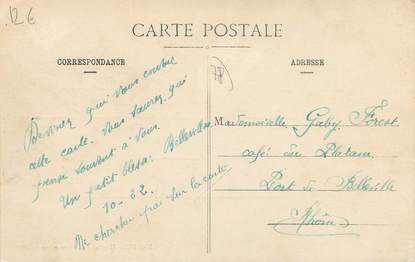 12€
CARTE POSTALE
CORRESPONDANCE
ADRESSE
Devinez qui vous envoie
cette carte. Vous saurez qui
pense souvent à vous.
Un petit blessé. Belleville
10-22.
Ne cherchez pas sur la carte
Mademoiselle Gaby Forest
café du Platane
Port de Belleville
Rhône